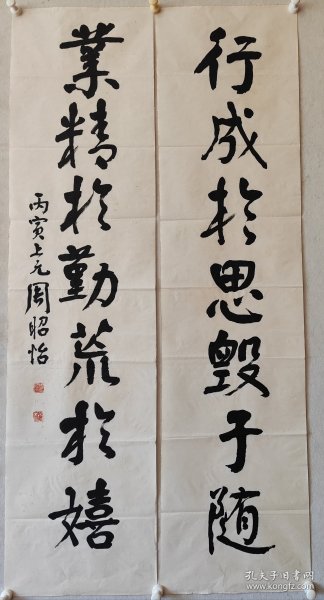 行成於思毀于随
業精於勤荒於嬉
丙寅上元周昭怡
孔夫子旧书网